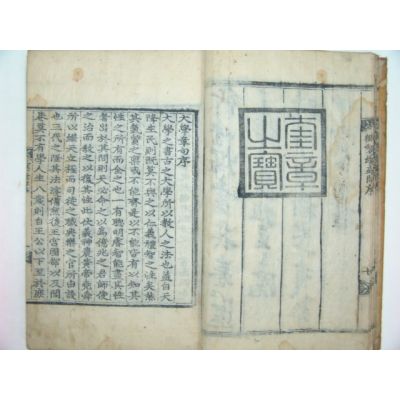 奎章
之寶
大學章句序
大學之書古之大學所以敎人之法也蓋自天
降生民則旣莫不與之以仁義禮智之性矣然
其氣質之稟或不能齊是以不能皆有以知其
性之所有而全之也一有聰明睿智能盡其性
者出於其間則天必命之以爲億兆之君師使
之治而敎之以復其性此伏羲神農黃帝堯舜
所以繼天立極而司徒之職典樂之官所由設
也三代之隆其法寖備然後王宮國都以及閭
巷莫不有學人生八歲則自王公以下至於庶